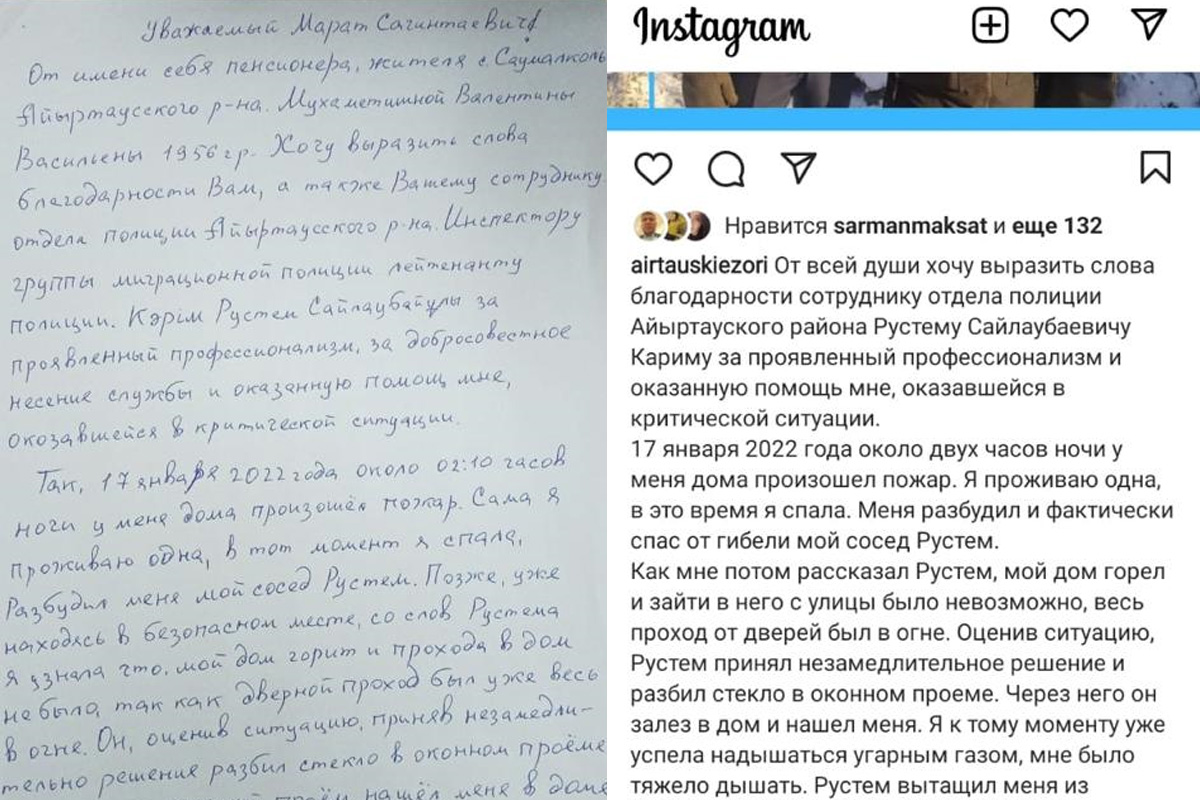 Уважаемый Марат Сагинтаевич!
От имени себя пенсионера, жителя с. Саумалколь
Айыртаусского р-на. Мухаметшиной Валентины
Васильены 1956 гр. Хочу выразить слова
благодарности Вам, а также Вашему сотруднику
отдела полиции Айыртаусского р-на. Инспектору
группы миграционной полиции лейтенанту
полиции. Кәрім Рустем Сайлаубайұлы за
проявленный профессионализм, за добросовестное
несение службы и оказанную помощ мне,
окозавшейся в критической ситуации.
Так, 17 января 2022 года около 02:10 часов
ночи у меня дома произошёл пожар. Сама я
проживаю одна, в тот момент я спала,
Разбудил меня мой сосед Рустем. Позже, уже
находясь в безопасном месте, со слов Рустема
я узнала что. мой дом горит и прохода в дом
не была так как дверной проход был уже весь
в огне. Он, оценив ситуацию, приняв незамедли-
тельно решение разбил стекло в оконном проёме
нашёл меня в доме
Instagram
Нравится sarmanmaksat и еще 132
airtauskiezori От всей души хочу выразить слова
благодарности сотруднику отдела полиции
Айыртауского района Рустему Сайлаубаевичу
Кариму за проявленный профессионализм и
оказанную помощь мне, оказавшейся в
критической ситуации.
17 января 2022 года около двух часов ночи у
меня дома произошел пожар. Я проживаю одна,
в это время я спала. Меня разбудил и фактически
спас от гибели мой сосед Рустем.
Как мне потом рассказал Рустем, мой дом горел
и зайти в него с улицы было невозможно, весь
проход от дверей был в огне. Оценив ситуацию,
Рустем принял незамедлительное решение и
разбил стекло в оконном проеме. Через него он
залез в дом и нашел меня. Я к тому моменту уже
успела надышаться угарным газом, мне было
тяжело дышать. Рустем вытащил меня из